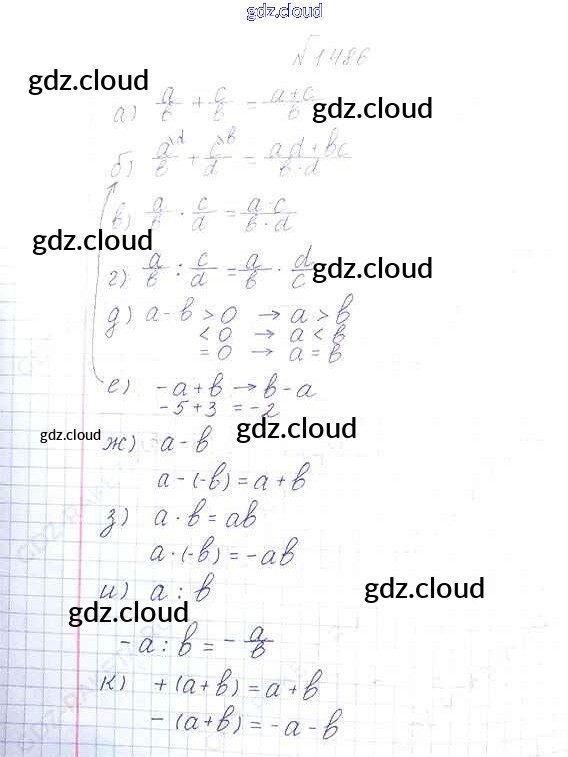 gdz.cloud
№1486
gdz.cloud
а) a/b + c/b = a+c/b
gdz.cloud
б) a\d/b + c\b/d = ad+bc/b·d
в) a/b · c/d = a·c/b·d
gdz.cloud
г) a/b : c/d = a/b · d/c
gdz.cloud
д) a-b > 0 → a > b
< 0 → a < b
= 0 → a = b
е) -a+b → b-a
-5+3 = -2
gdz.cloud
ж) a-b
gdz.cloud
a-(-b) = a+b
з) a·b = ab
a·(-b) = -ab
и) a : b
gdz.cloud
gdz.cloud
-a : b = -a/b
к) +(a+b) = a+b
-(a+b) = -a-b